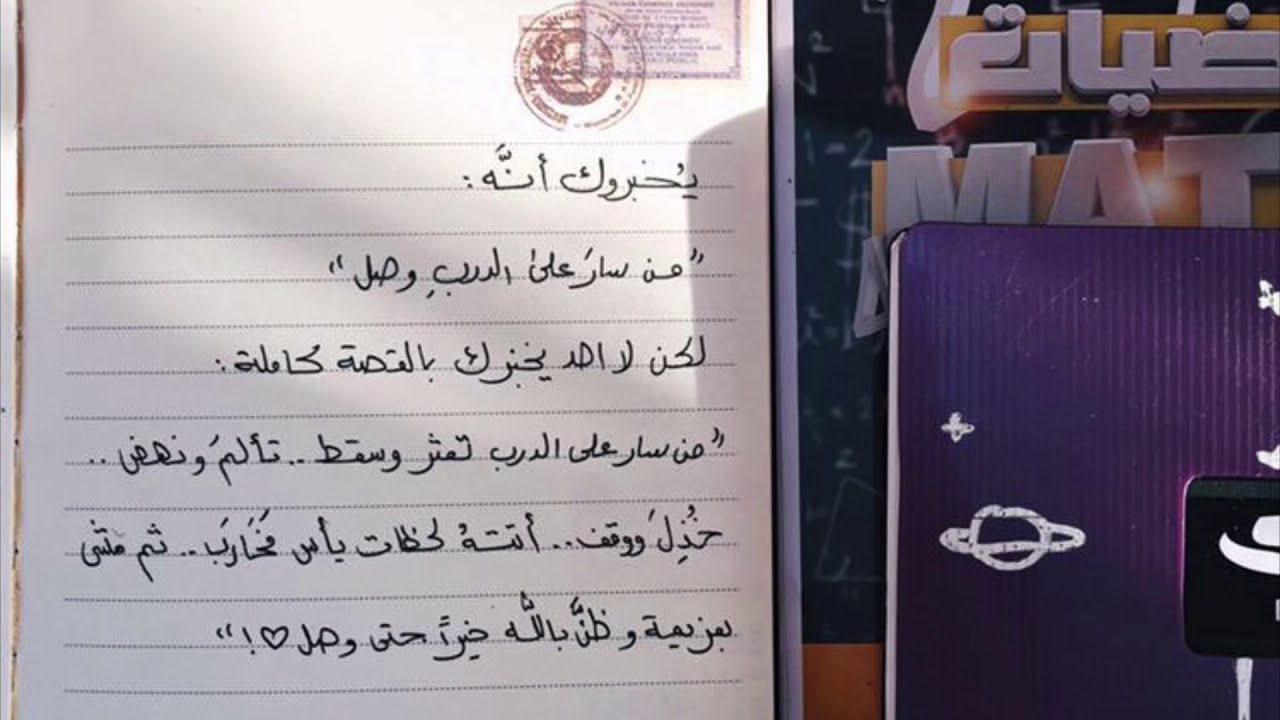 يُخبروك أنَّه :
"من سارَ على الدربِ وصل"
لكن لا احد يخبرك بالقصة كاملة :
"من سار على الدرب تعثر وسقط .. تألمَ ونهض ..
خُذِلَ ووقف .. أتتهُ لحظات يأس فَحَارَبَ .. ثم مشى
بعزيمة و ظنَّ باللَّه خيراً حتى وصل ♡ ! "
ضيات
MAT